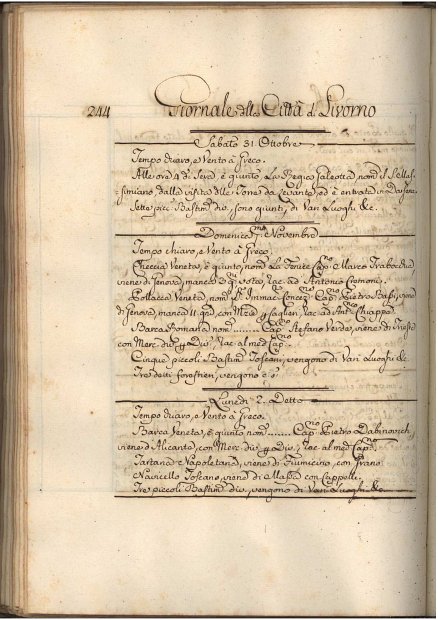 244 Giornale della Città di Livorno
Sabato 31. Ottobre
Tempo chiaro, e Vento à Greco.
Alle ore 4 di Sera, è giunto La Regia Galeotta nom.
dalla visita delle Torre da Levante, ed è entrata in Darsena.
Sette picc. Bastim. div. sono giunti, di Vari Luoghi &c.
Domenica P.mo Novembre
Tempo chiaro, e Vento à Greco.
Checcia Veneta, è giunto, nom. La Fenice Cap. Marco
viene di Genova, manca D. vota, rac. ad Antonio Cremoni.
Pollacca Veneta, nom. L'Immac. Concez. Cap. Pietro viene
di Genova, manca 11. g. con Merc. p Caglieri, rac. ad Ant. Chiappe.
Barca Romana nom. ........ Cap. Stefano Verde, viene di Trieste
con Merc. div. p Div. rac. al med. Cap.no
Cinque piccoli Bastim. Toscani, vengono di Vari Luoghi &c.
Tre detti forestieri, vengono
Lunedi 2. Detto
Tempo chiaro, e Vento à Greco.
Barca Veneta, è giunto nom. ....... Cap. Pietro Dabinovich,
viene d'Alicante, con Merc. div. p Div. rac. al med. Cap.no
Tartana Napoletana, viene di Fiumicino, con Grano
Navicello Toscano, viene di Massa con Cappelli.
Tre piccoli Bastim. div. vengono di Vari Luoghi &c.